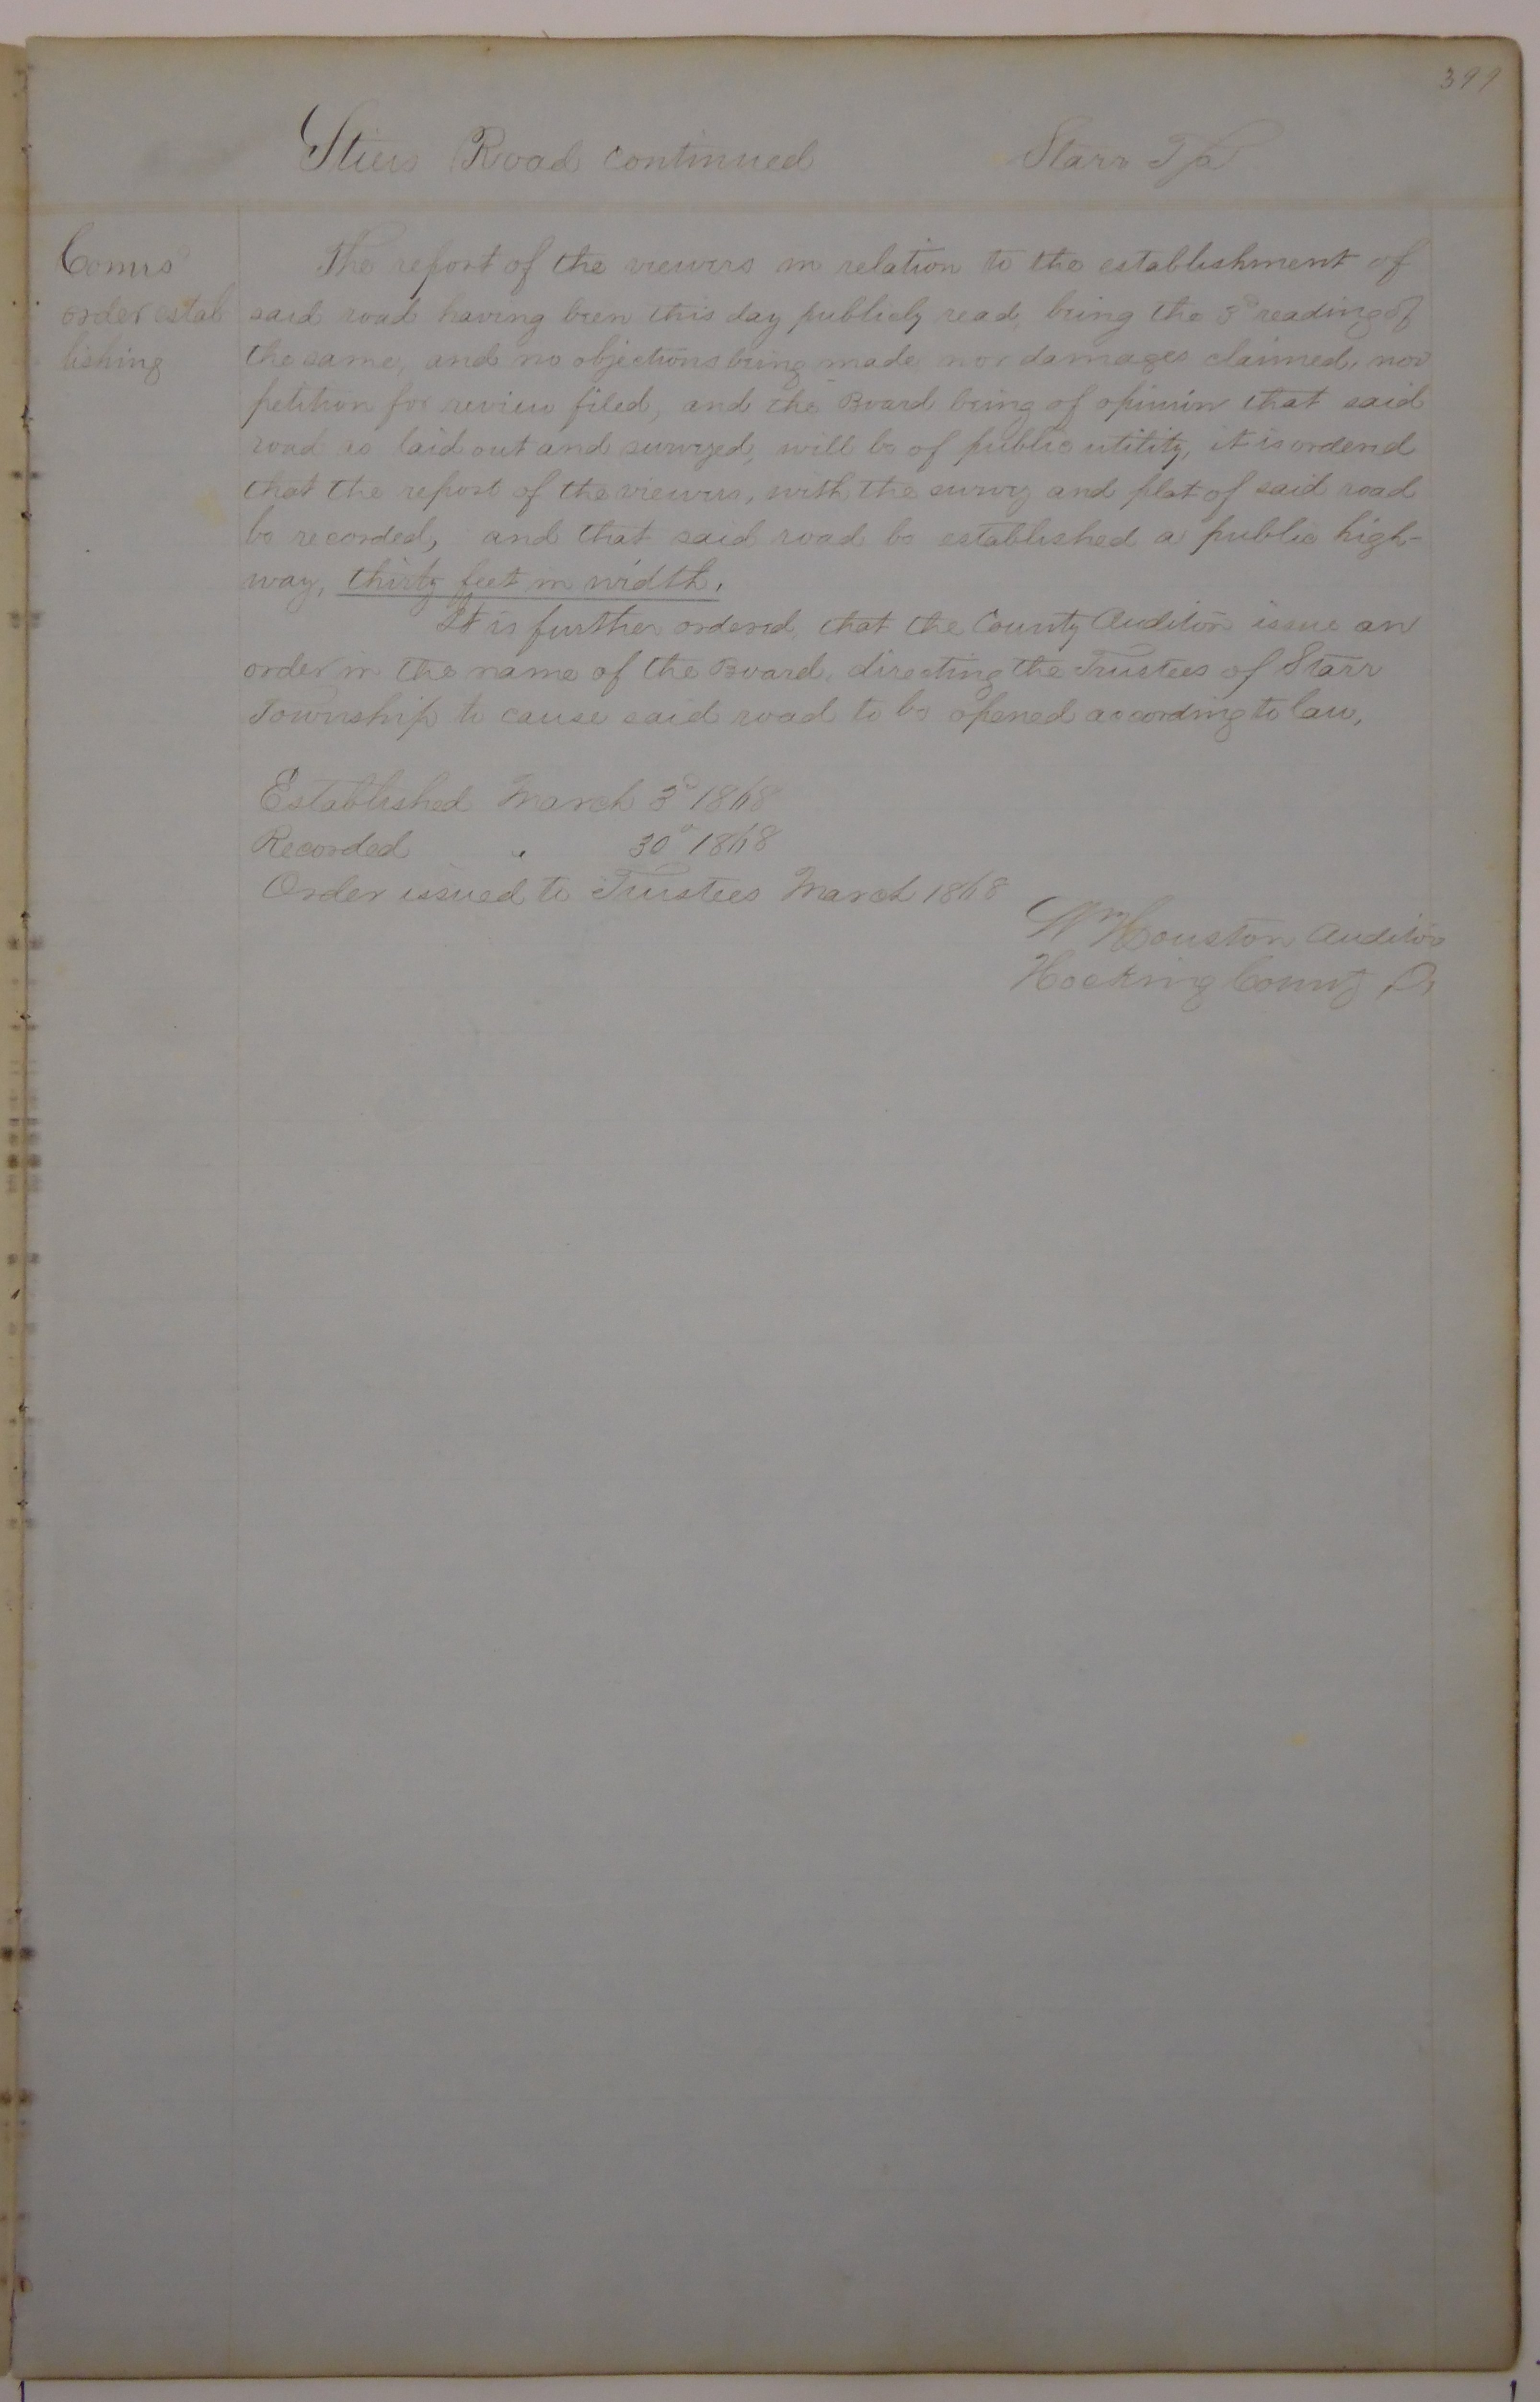 399
Stiers Road continued Starr Tp
Comrs The report of the viewers in relation to the establishment of
order estab said road having been this day publicly read, being the 3d reading of
lishing the same, and no objections being made nor damages claimed, nor
petition for review filed, and the Board being of opinion that said
road as laid out and surveyed, will be of public utility, it is ordered
that the report of the viewers, with the survey and plat of said road
be recorded, and that said road be established a public high-
way, thirty feet in width.
It is further ordered, that the County Auditor issue an
order in the name of the Board, directing the Trustees of Starr
Township to cause said road to be opened according to law,
Established March 3d 1868
Recorded " 30" 1868
Order issued to Trustees March 1868
Wm Houston Auditor
Hocking County, O,